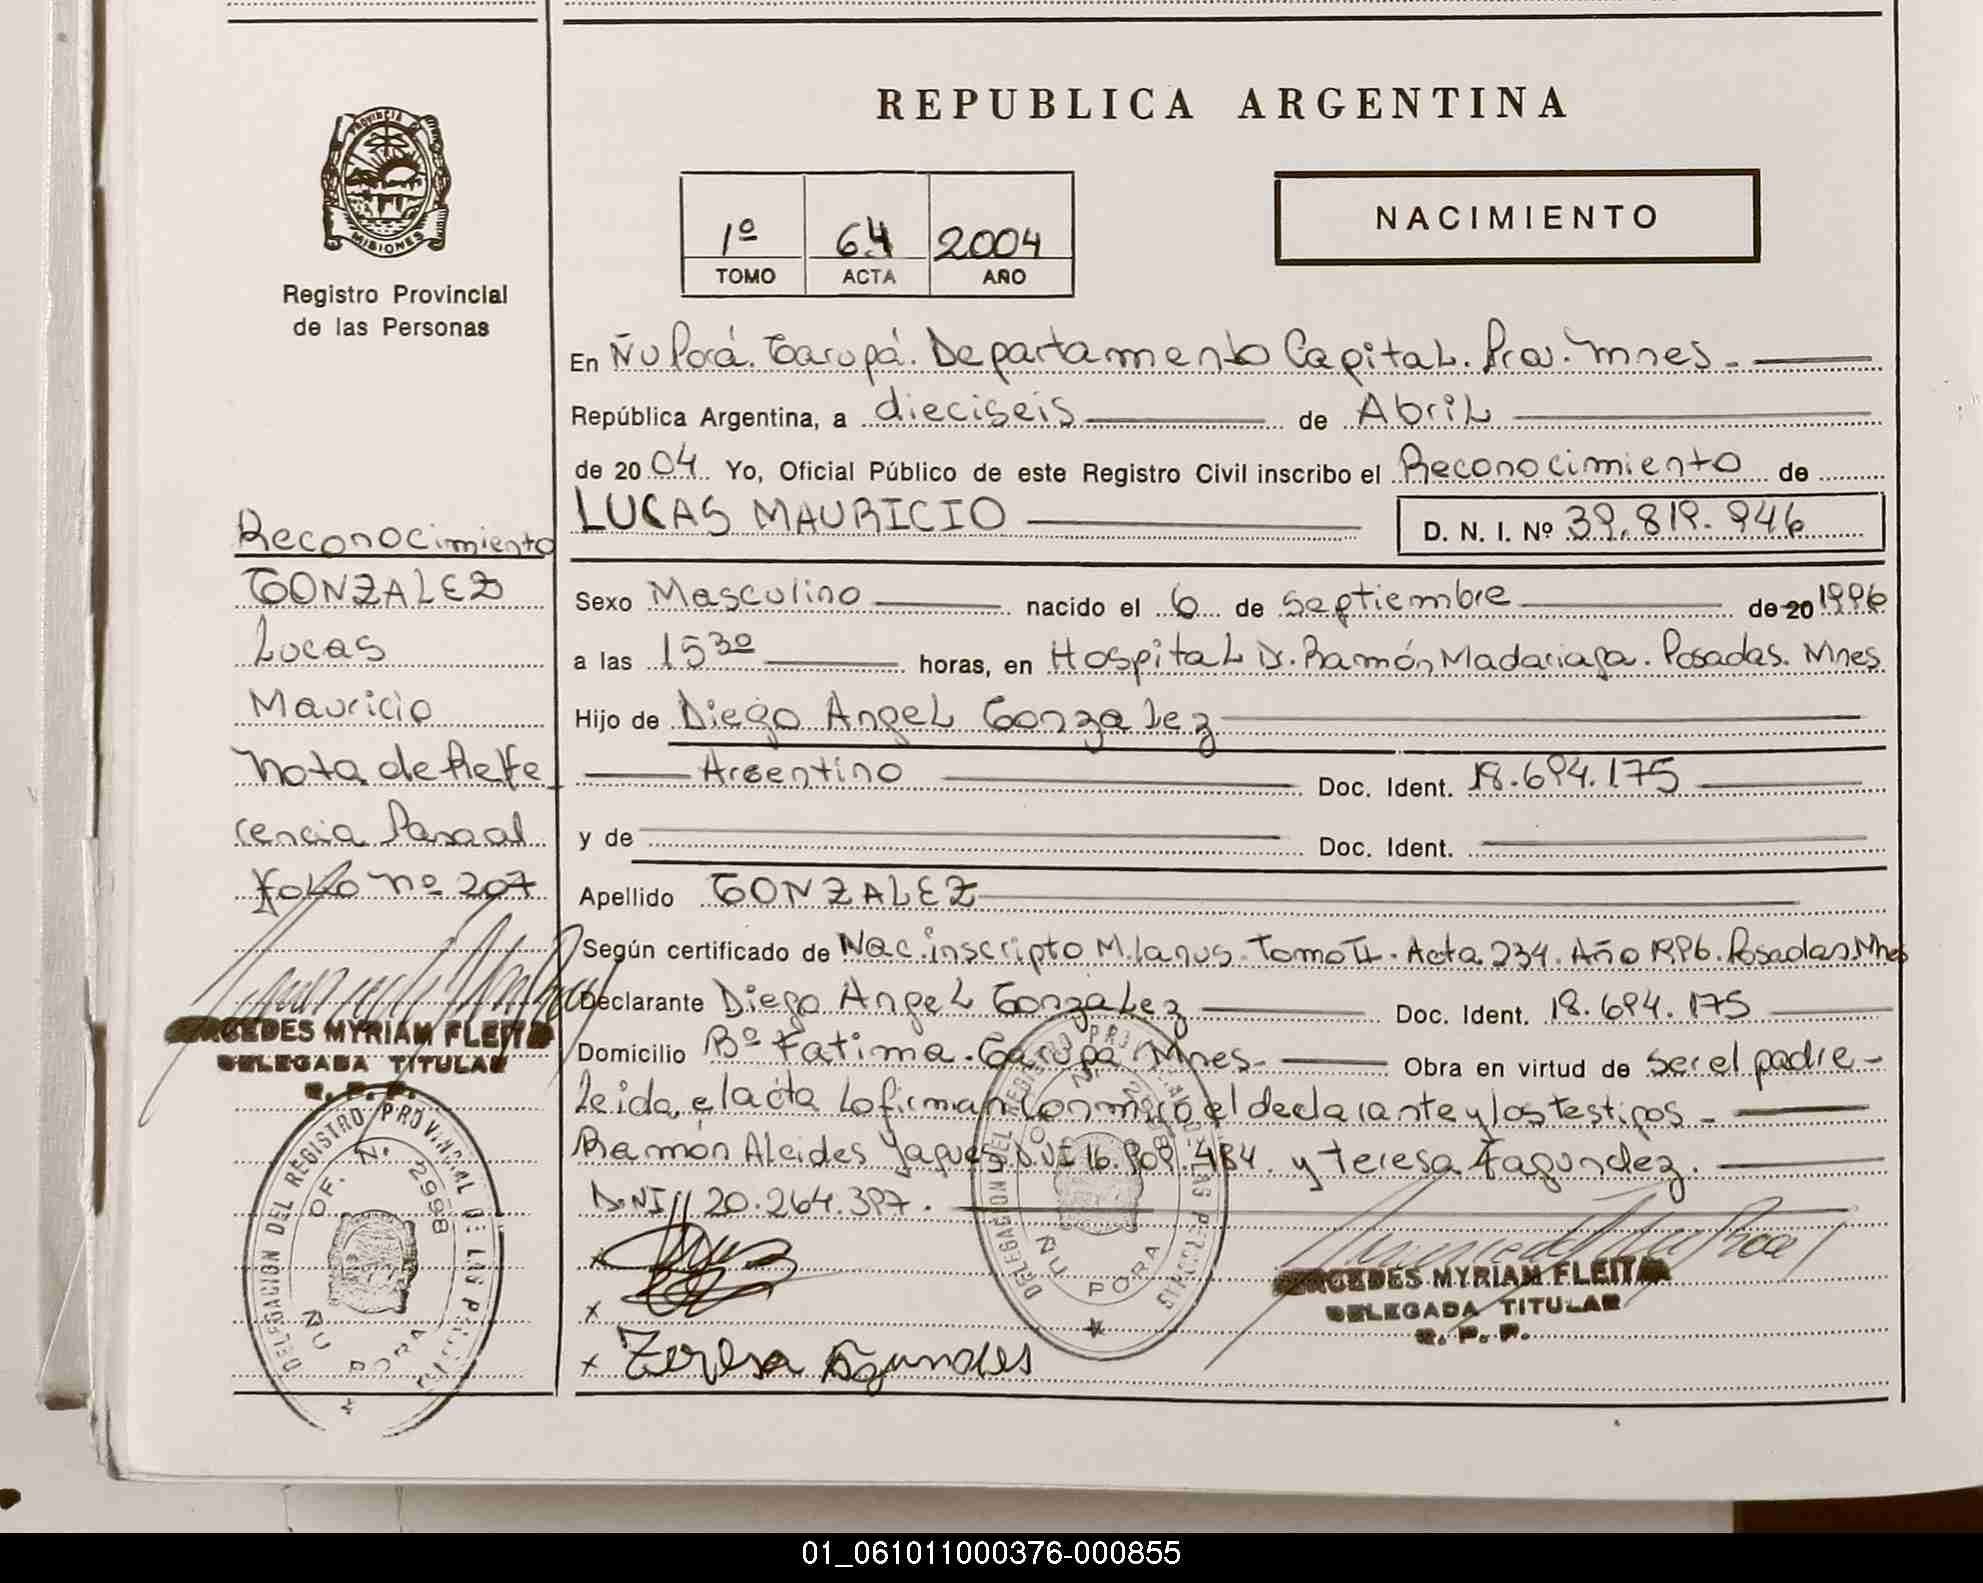 REPUBLICA ARGENTINA
PROVINCIA
MISIONES
Registro Provincial
de las Personas
1º 64 2004
TOMO ACTA AÑO
NACIMIENTO
En Ñu Porá. Garupá. Departamento Capital. Prov. Mnes.
República Argentina, a dieciseis de Abril
de 2004 Yo, Oficial Público de este Registro Civil inscribo el Reconocimiento de
LUCAS MAURICIO D. N. I. Nº 39.819.946
Sexo Masculino nacido el 6 de Septiembre de 20 1996
a las 15 30 horas, en Hospital Dr. Ramón Madariaga. Posadas. Mnes
Hijo de Diego Angel Gonzalez
Argentino Doc. Ident. 18.694.175
y de Doc. Ident.
Apellido GONZALEZ
Según certificado de Nac. inscripto M. lanus. Tomo II. Acta 234. Año 1996. Posadas. Mnes
Declarante Diego Angel Gonzalez Doc. Ident. 18.694.175
Domicilio Bº Fatima. Garupá Mnes. Obra en virtud de ser el padre
Leida, el acta lo firman conmigo el declarante y los testigos
Ramón Alcides Yaques DNI 16.909.484 y teresa Fagundez.
DNI 20.264.397.
x
x
x Teresa Fagundes
MERCEDES MYRIAM FLEITA
DELEGADA TITULAR
R. P. P.
DELEGACION DEL REGISTRO PROVINCIAL DE LAS PERSONAS
OF. N. 2998
ÑU PORA
Reconocimiento
GONZALEZ
Lucas
Mauricio
Nota de Refe
rencia Pasa al
folio Nº 207
MERCEDES MYRIAM FLEITA
DELEGADA TITULAR
R. P. P.
DELEGACION DEL REGISTRO PROVINCIAL DE LAS PERSONAS
OF. N. 2998
ÑU PORA
01_061011000376-000855